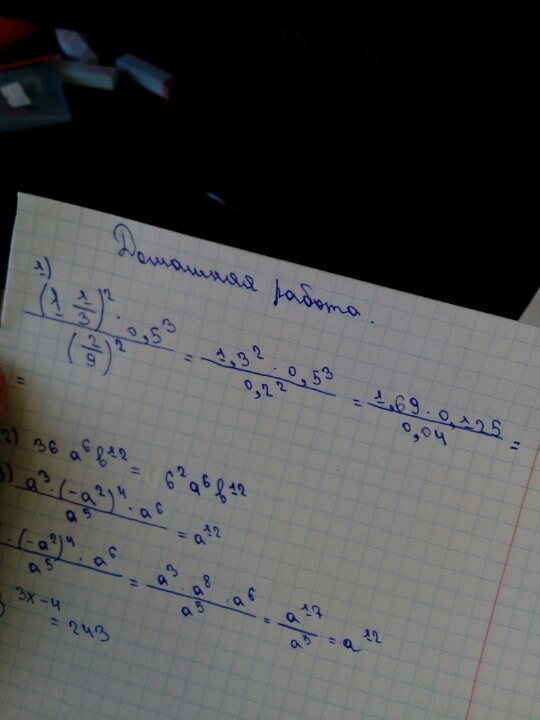 Домашняя работа.
1)
(1 1/3)² · 0,5³ / (2/9)² = 1,3² · 0,5³ / 0,2² = 1,69 · 0,125 / 0,04 =
=
2) 36 a⁶b¹² = 6²a⁶b¹²
3) a³ · (-a²)⁴ · a⁶ / a⁵ = a¹²
· (-a²)⁴ · a⁶ / a⁵ = a³ · a⁸ · a⁶ / a⁵ = a¹⁷ / a⁵ = a¹²
3x-4
= 243